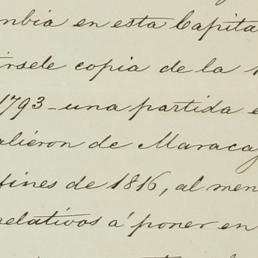 mbia en esta Capita
írsele copia de la
1793 - una partida e
alieron de Maraca
fines de 1816, al men
relativos á poner en